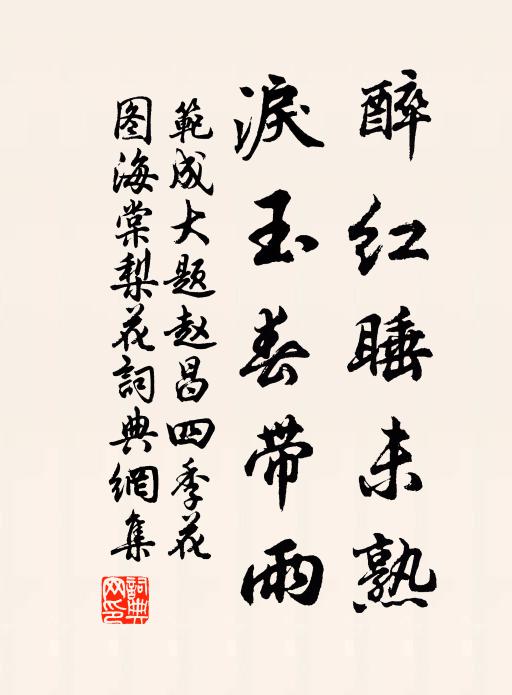 醉红睡未熟
淚玉春带雨
範成大题赵昌四季花
图海棠梨花詞典網集